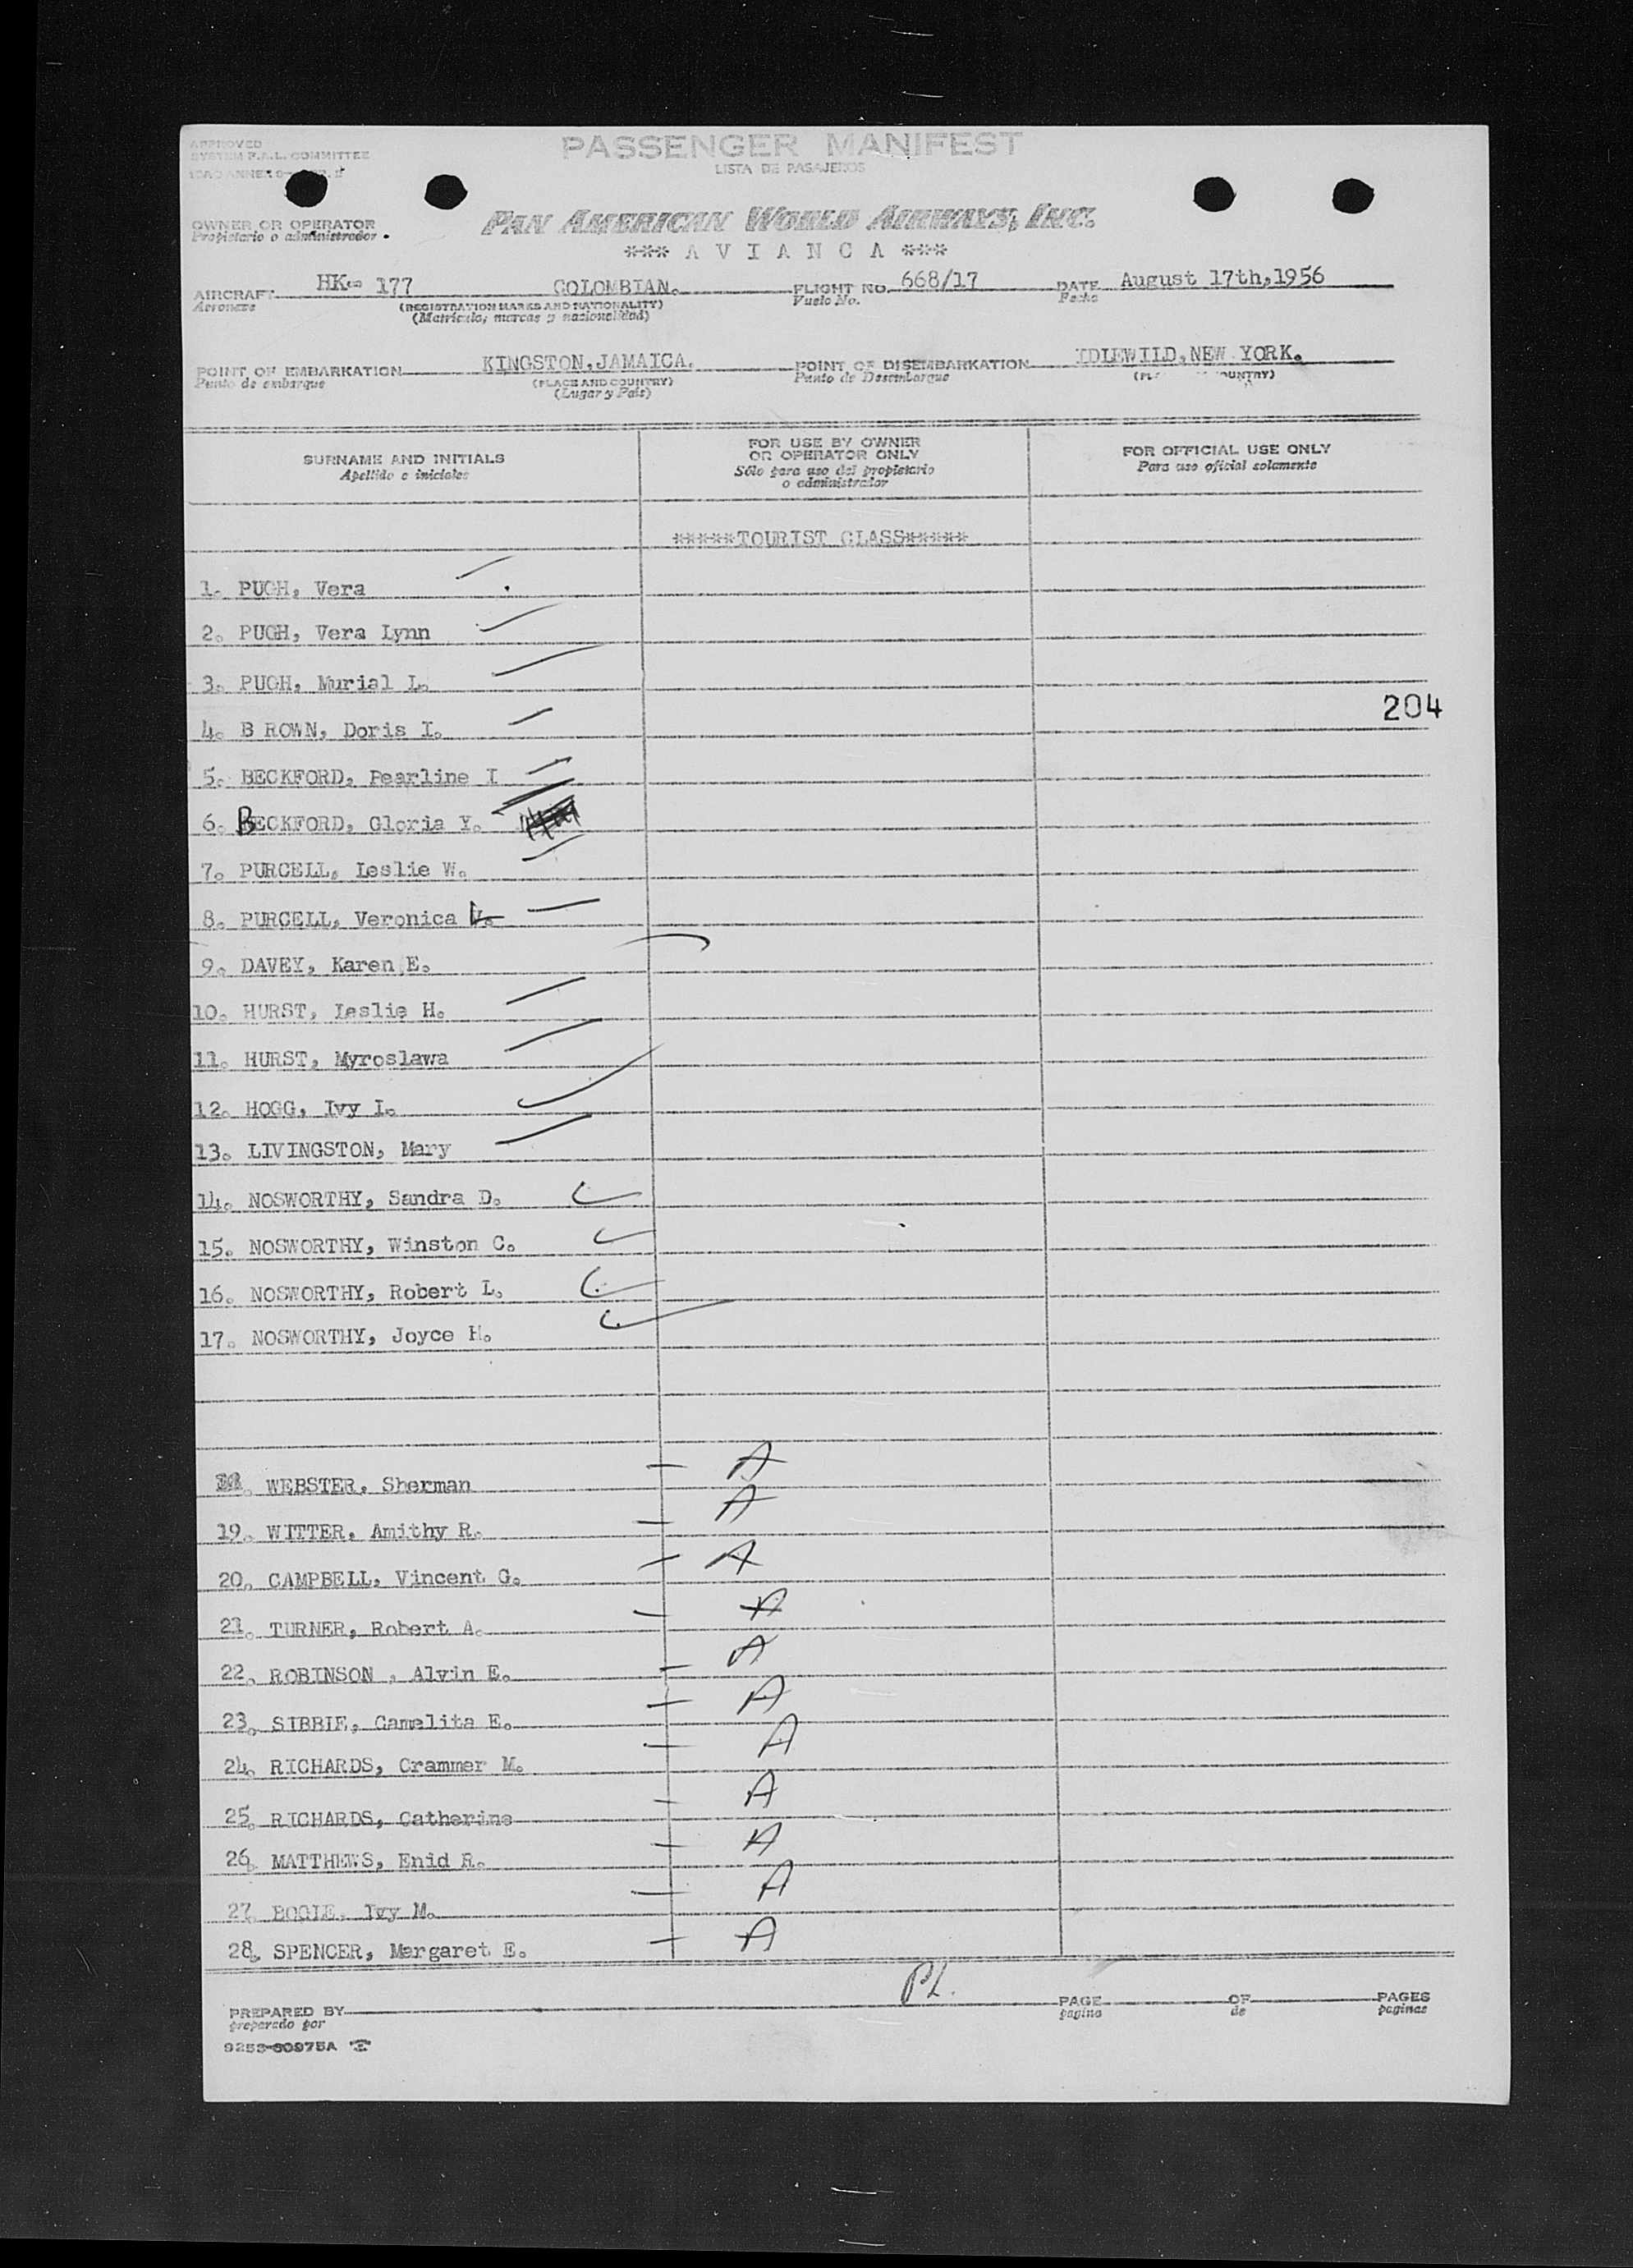 APPROVED
SYSTEM F.A.L. COMMITTEE
ICAO ANNEX
PASSENGER MANIFEST
LISTA DE PASAJEROS
OWNER OR OPERATOR
Propietario o administrador.
PAN AMERICAN WORLD AIRWAYS, INC.
*** A V I A N C A ***
AIRCRAFT HK- 177 COLOMBIAN. FLIGHT NO. 668/17 DATE August 17th,1956
Aeronave (REGISTRATION MARKS AND NATIONALITY) Vuelo No. Fecha
(Matricula, marcas y nacionalidad)
POINT OF EMBARKATION KINGSTON,JAMAICA. POINT OF DISEMBARKATION IDLEWILD,NEW YORK.
Punto de embarque (PLACE AND COUNTRY) Punto de Desembarque
(Lugar y País)
SURNAME AND INITIALS
Apellido e iniciales
FOR USE BY OWNER
OR OPERATOR ONLY
Sólo para uso del propietario
o administrador
FOR OFFICIAL USE ONLY
Para uso oficial solamente
*****TOURIST CLASS*****
1. PUGH, Vera
2. PUGH, Vera Lynn
3. PUGH, Murial L.
204
4. B ROWN, Doris I.
5. BECKFORD, Pearline I
6. BECKFORD, Gloria Y.
7. PURCELL, Leslie W.
8. PURCELL, Veronica
9. DAVEY, Karen E.
10. HURST, Leslie H.
11. HURST, Myroslawa
12. HOGG, Ivy I.
13. LIVINGSTON, Mary
14. NOSWORTHY, Sandra D.
15. NOSWORTHY, Winston C.
16. NOSWORTHY, Robert L.
17. NOSWORTHY, Joyce H.
WEBSTER, Sherman A
19. WITTER, Amithy R. A
20. CAMPBELL, Vincent G. A
21. TURNER, Robert A. A
22. ROBINSON , Alvin E. A
23. SIBBIE, Camelita E. A
24. RICHARDS, Crammer M. A
25. RICHARDS, Catherine A
26. MATTHEWS, Enid R. A
27. BOGLE, Ivy M. A
28. SPENCER, Margaret E. A
PL.
PREPARED BY PAGE OF PAGES
preparado por pagina de paginas